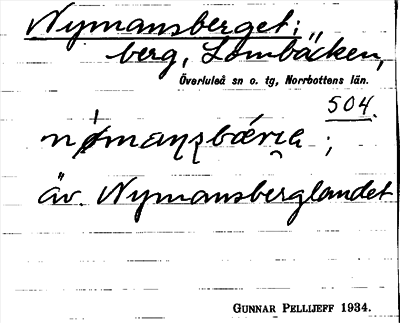 Nymansberget;
berg, Lombäcken,
Överluleå sn o. tg, Norrbottens län.
504.
äv. Nymansberglandet
GUNNAR PELLIJEFF 1934.